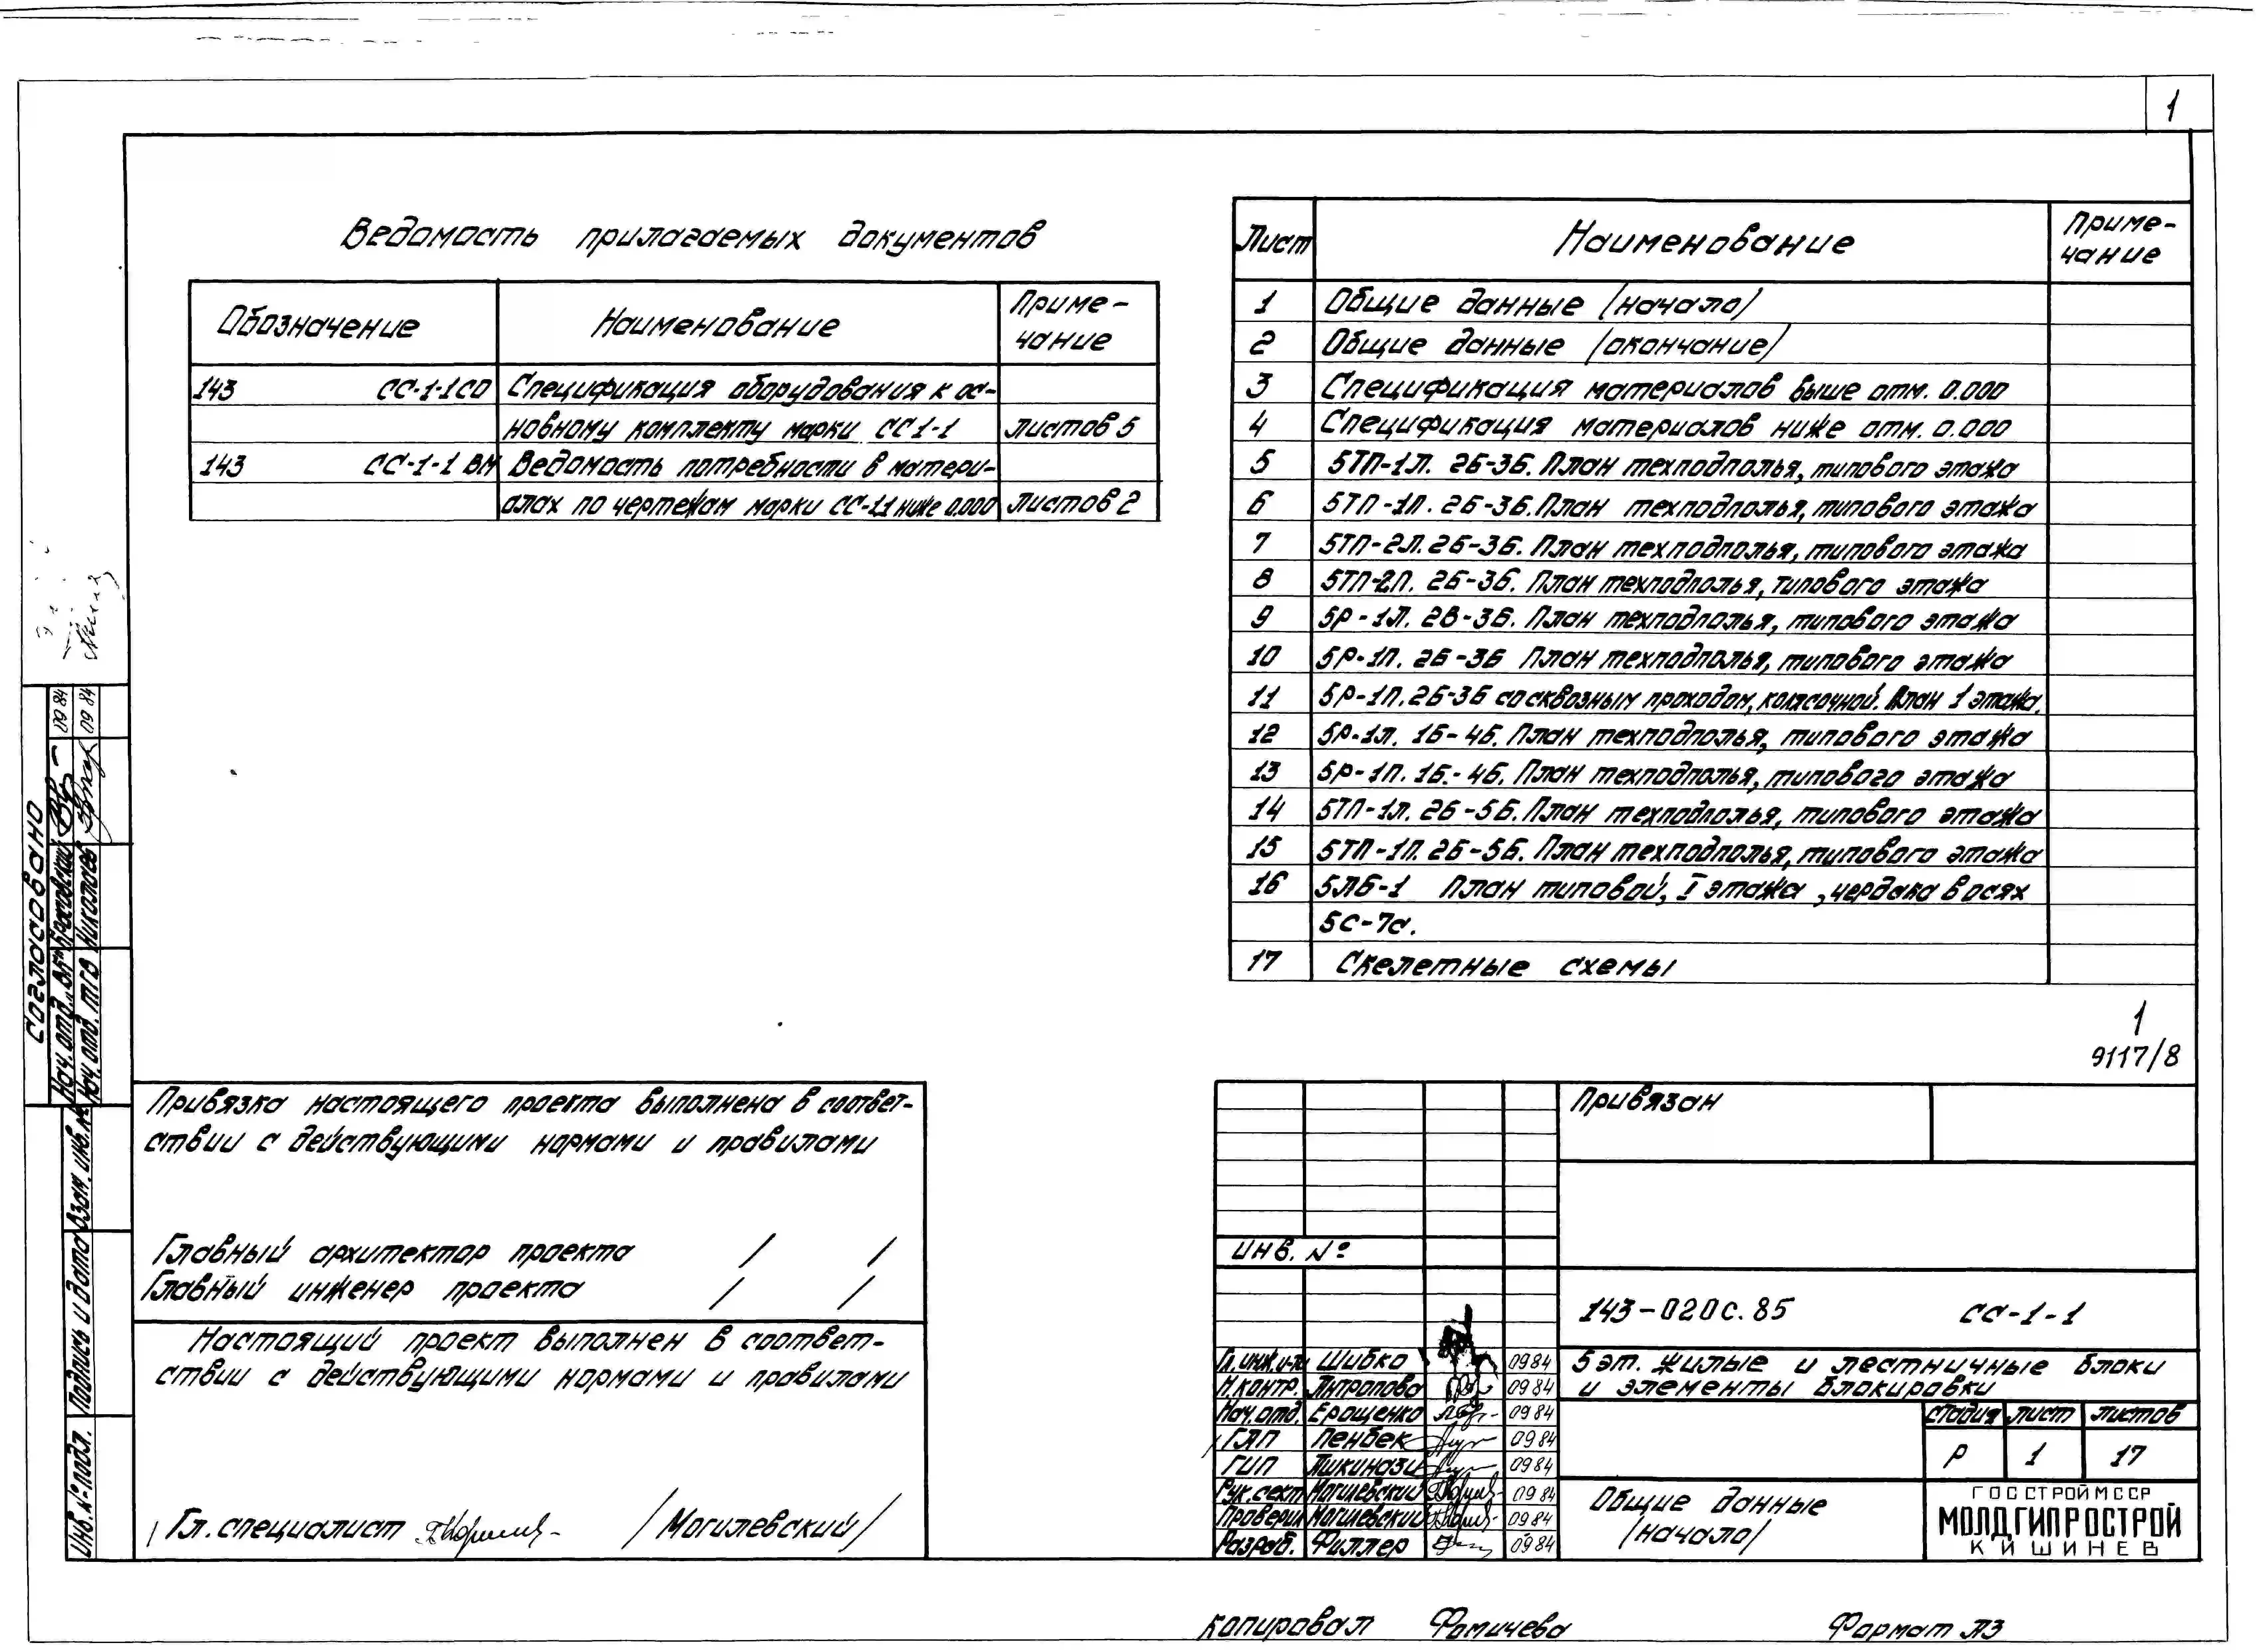 1
Ведомость прилагаемых документов
Обозначение Наименование Приме-
чание
143 СС-1-1СО Спецификация оборудования к ос-
новному комплекту марки СС1-1 листов 5
143 СС-1-1 ВМ Ведомость потребности в матери-
алах по чертежам марки СС-1.1 ниже 0.000 листов 2
Лист Наименование Приме-
чание
1 Общие данные /начало/
2 Общие данные /окончание/
3 Спецификация материалов выше отм. 0.000
4 Спецификация материалов ниже отм. 0.000
5 5ТП-1л. 2Б-3Б. План техподполья, типового этажа
6 5ТП-1п. 2Б-3Б. План техподполья, типового этажа
7 5ТП-2л. 2Б-3Б. План техподполья, типового этажа
8 5ТП-2п. 2Б-3Б. План техподполья, типового этажа
9 5Р-1л. 2В-3Б. План техподполья, типового этажа
10 5Р-1п. 2Б-3Б План техподполья, типового этажа
11 5Р-1п. 2Б-3Б со сквозным проходом, колясочной. План 1 этажа.
12 5Р-1л. 1Б-4Б. План техподполья, типового этажа
13 5Р-1п. 1Б.-4Б. План техподполья, типового этажа
14 5ТП-1л. 2Б-5Б. План техподполья, типового этажа
15 5ТП-1п. 2Б-5Б. План техподполья, типового этажа
16 5ЛБ-1 План типовой, I этажа, чердака в осях
5с-7с.
17 Скелетные схемы
1
9117/8
Согласовано
Нач. отд. "ВГ" Бросовский 09 84
Нач. отд. ТГВ Николаев 09 84
Взам. инв. №
Подпись и дата
Инв. № подл.
Привязка настоящего проекта выполнена в соответ-
ствии с действующими нормами и правилами
Главный архитектор проекта / /
Главный инженер проекта / /
Настоящий проект выполнен в соответ-
ствии с действующими нормами и правилами
Гл. специалист /Могилевский/
Привязан
Инв. №
143-020с.85 СС-1-1
Гл. инж. и-та Шибко 0984
Н.контр. Антропова 0984
Нач. отд. Ерощенко 0984
ГАП Пенбек 0984
ГИП Ашкинази 0984
Рук. сект Могилевский 0984
Проверил Могилевский 0984
Разраб. Филлер 0984
5 эт. жилые и лестничные блоки
и элементы блокировки
Стадия Лист Листов
Р 1 17
Общие данные
/начало/
ГОССТРОЙ МССР
МОЛДГИПРОСТРОЙ
КИШИНЕВ
Копировал Фомичева Формат А3